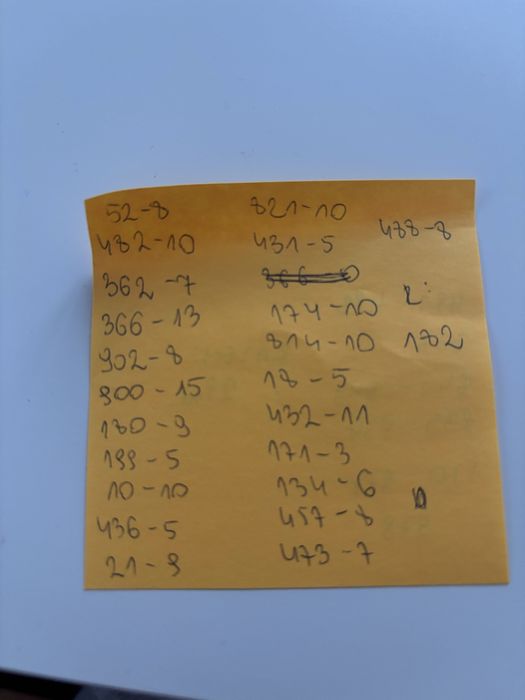 52-8
482-10
362-7
366-13
902-8
900-15
180-9
199-5
10-10
436-5
21-9
821-10
431-5
174-10
814-10
18-5
432-11
171-3
134-6
457-8
473-7
488-8
182